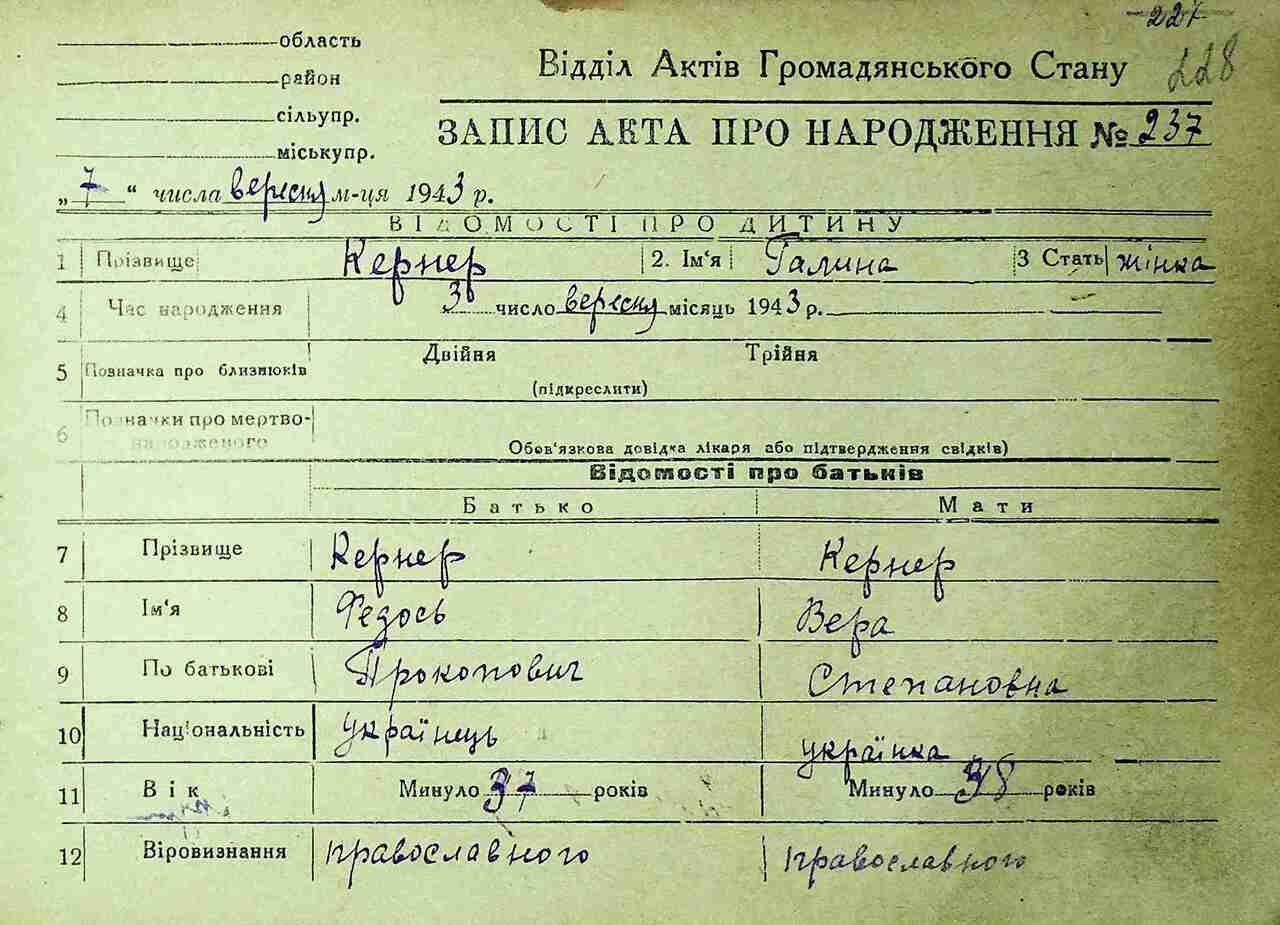 227
228
область
район
сільупр.
міськупр.
Відділ Актів Громадянського Стану
ЗАПИС АКТА ПРО НАРОДЖЕННЯ № 237
„ 7 “ числа вересня м-ця 1943 р.
ВІДОМОСТІ ПРО ДИТИНУ
1 Прізвище Кернер 2. Ім'я Галина 3 Стать жінка
4 Час народження 3 число вересня місяць 1943 р.
5 Позначка про близнюків Двійня Трійня
(підкреслити)
6 Позначки про мертво-
народженого
Обов'язкова довідка лікаря або підтвердження свідків)
Відомості про батьків
Батько Мати
7 Прізвище Кернер Кернер
8 Ім'я Федось Вера
9 По батькові Прокопович Степановна
10 Національність українець українка
11 Вік Минуло 37 років Минуло 38 років
12 Віровизнання православного православного